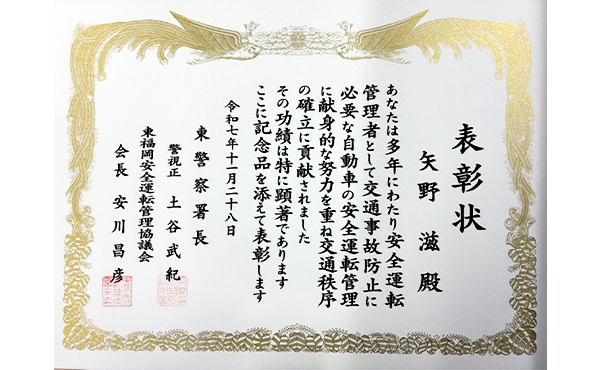 表彰状
矢野滋殿
あなたは多年にわたり安全運転
管理者として交通事故防止に
必要な自動車の安全運転管理
に献身的な努力を重ね交通秩序
の確立に貢献されました
その功績は特に顕著であります
ここに記念品を添えて表彰します
令和七年十一月二十八日
東警察署長
警視正 土谷武紀
東福岡安全運転管理協議会
会長 安川昌彦